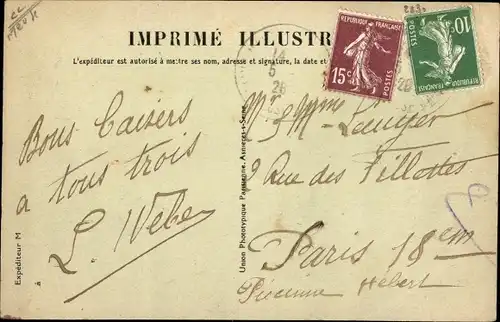 IMPRIMÉ ILLUSTR
L'expéditeur est autorisé à mettre ses nom, adresse et signature, la date et
RÉPUBLIQUE FRANÇAISE
15c
POSTES
RÉPUBLIQUE FRANÇAISE
10c
POSTES
14
5
26
Bons baisers
a tous trois
L. Weber
Mr Mme
9 Rue des Fillettes
Paris 18em
Hébert
Expéditeur M
à
Union Phototypique Parisienne, Asnières-s-Seine